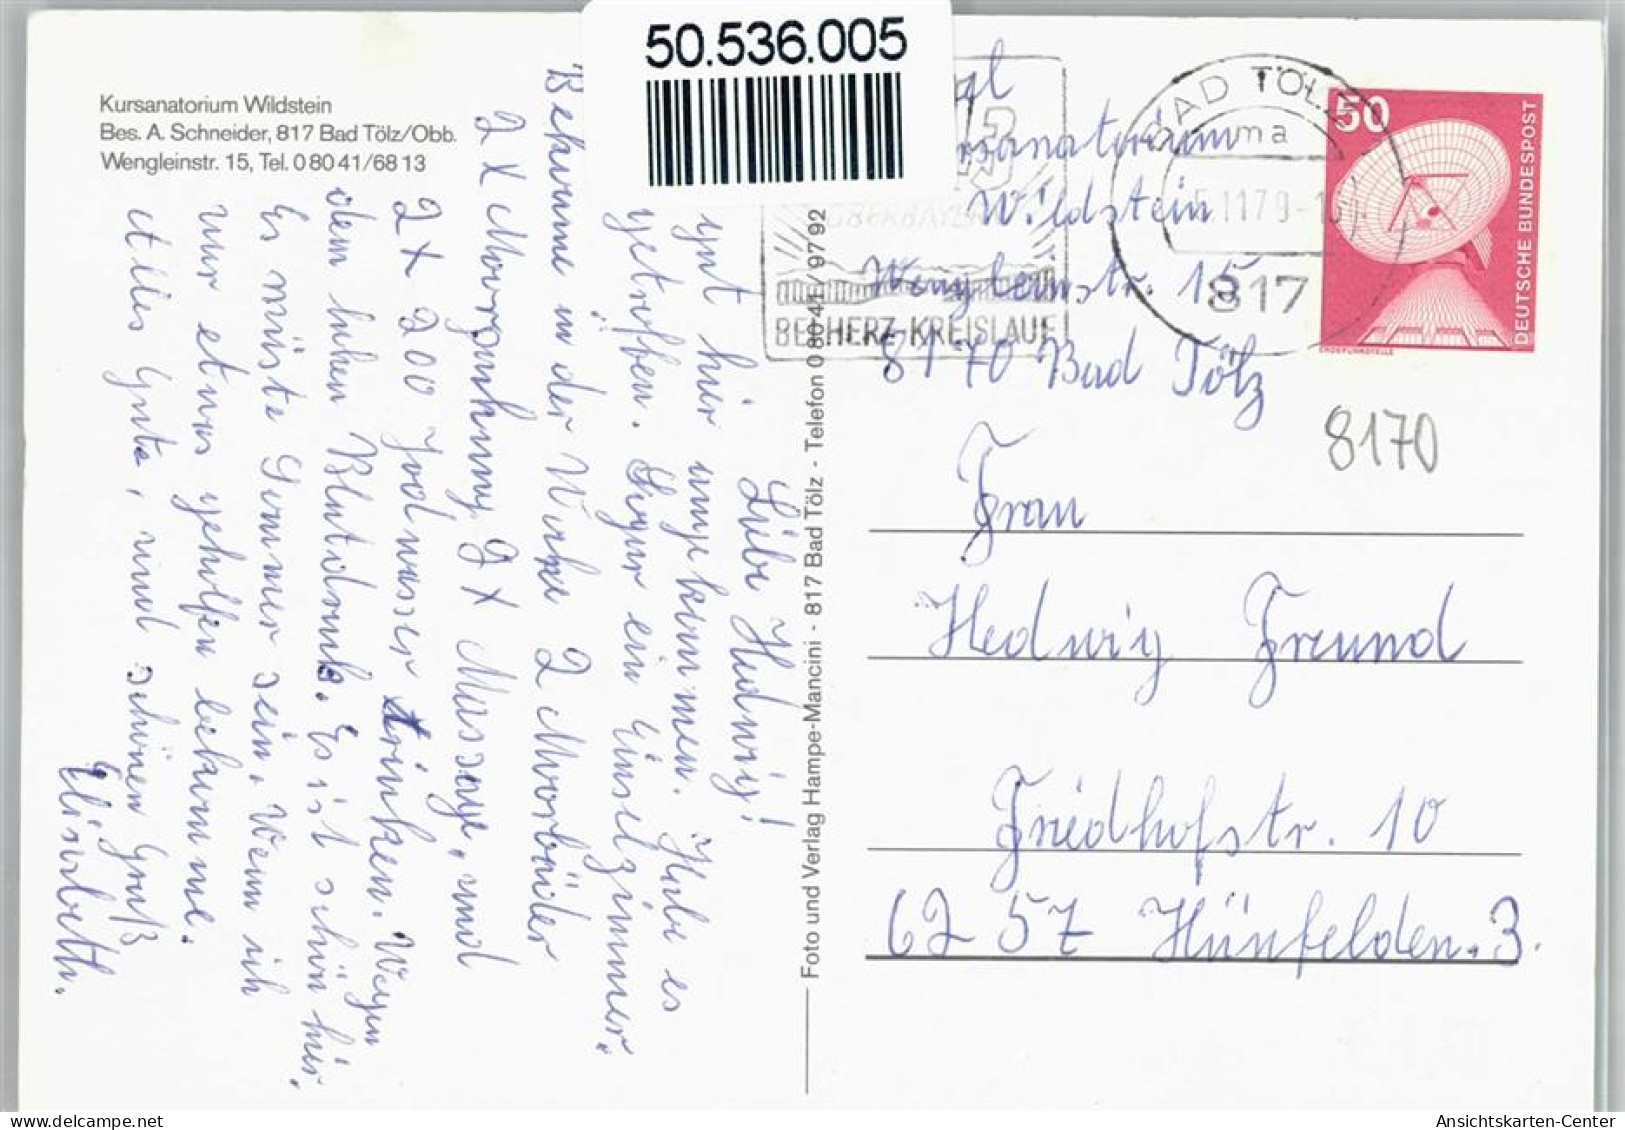 50.536.005
Kursanatorium Wildstein
Bes. A. Schneider, 817 Bad Tölz/Obb.
Wengleinstr. 15, Tel. 0 80 41/68 13
Liebe Hedwig!
gut hier angekommen. Habe es
getroffen. Sogar ein Einzelzimmer.
Bekomme in der Woche 2 Moorbäder
2 x Morgen 9 x Massage, und
2 x 200 Jodwasser trinken. Wegen
dem hohen Blutdruck. Es ist schön hier.
Es müste Sommer sein. Wenn ich
nur etwas geholfen bekomme.
Alles Gute, und schönen Gruß
Elisabeth.
Foto und Verlag Hampe-Mancini - 817 Bad Tölz - Telefon 0 80 41 / 97 92
Wildstein
Wengleinstr. 15
8170 Bad Tölz
OBERBAYERN
BEI HERZ-KREISLAUF
BAD TÖLZ
ma
817
50
DEUTSCHE BUNDESPOST
ERDEFUNKSTELLE
8170
Frau
Hedwig Freund
Friedhofstr. 10
6257 Hünfelden.3.
Ansichtskarten-Center
at-www.delcampe.net